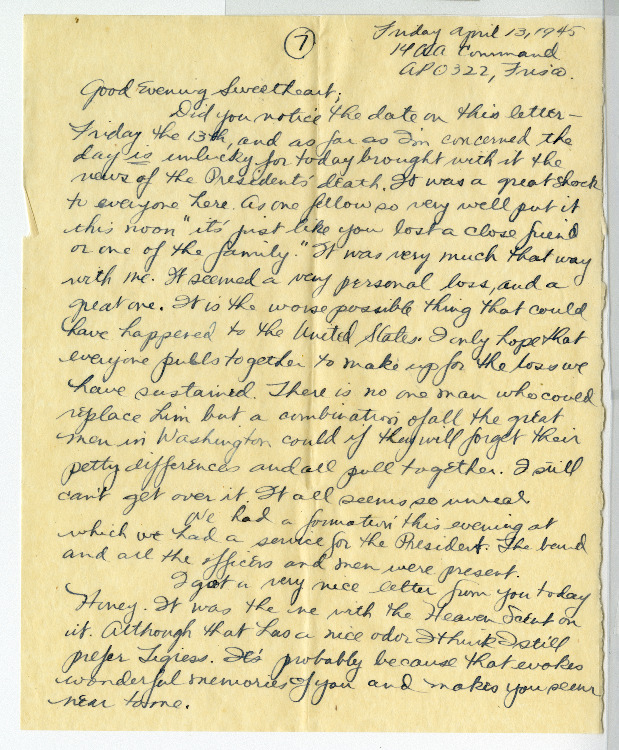 7
Friday April 13, 1945
14 AA Command
APO 322, Frisco.
Good Evening Sweetheart;
Did you notice the date on this letter—
Friday the 13th, and as far as I'm concerned the
day is unlucky for today brought with it the
news of the President's death. It was a great shock
to everyone here. As one fellow so very well put it
this noon "it's just like you lost a close friend
or one of the family." It was very much that way
with me. It seemed a very personal loss, and a
great one. It is the worse possible thing that could
have happened to the United States. I only hope that
everyone pulls together to make up for the loss we
have sustained. There is no one man who could
replace him but a combination of all the great
men in Washington could if they will forget their
petty differences and all pull together. I still
can't get over it. It all seems so unreal
We had a formation this evening at
which we had a service for the President. The band
and all the officers and men were present.
I got a very nice letter from you today
Honey. It was the one with the Heaven Scent on
it. Although that has a nice odor I think I still
prefer Tigress. It's probably because that evokes
wonderful memories of you and makes you seem
near to me.